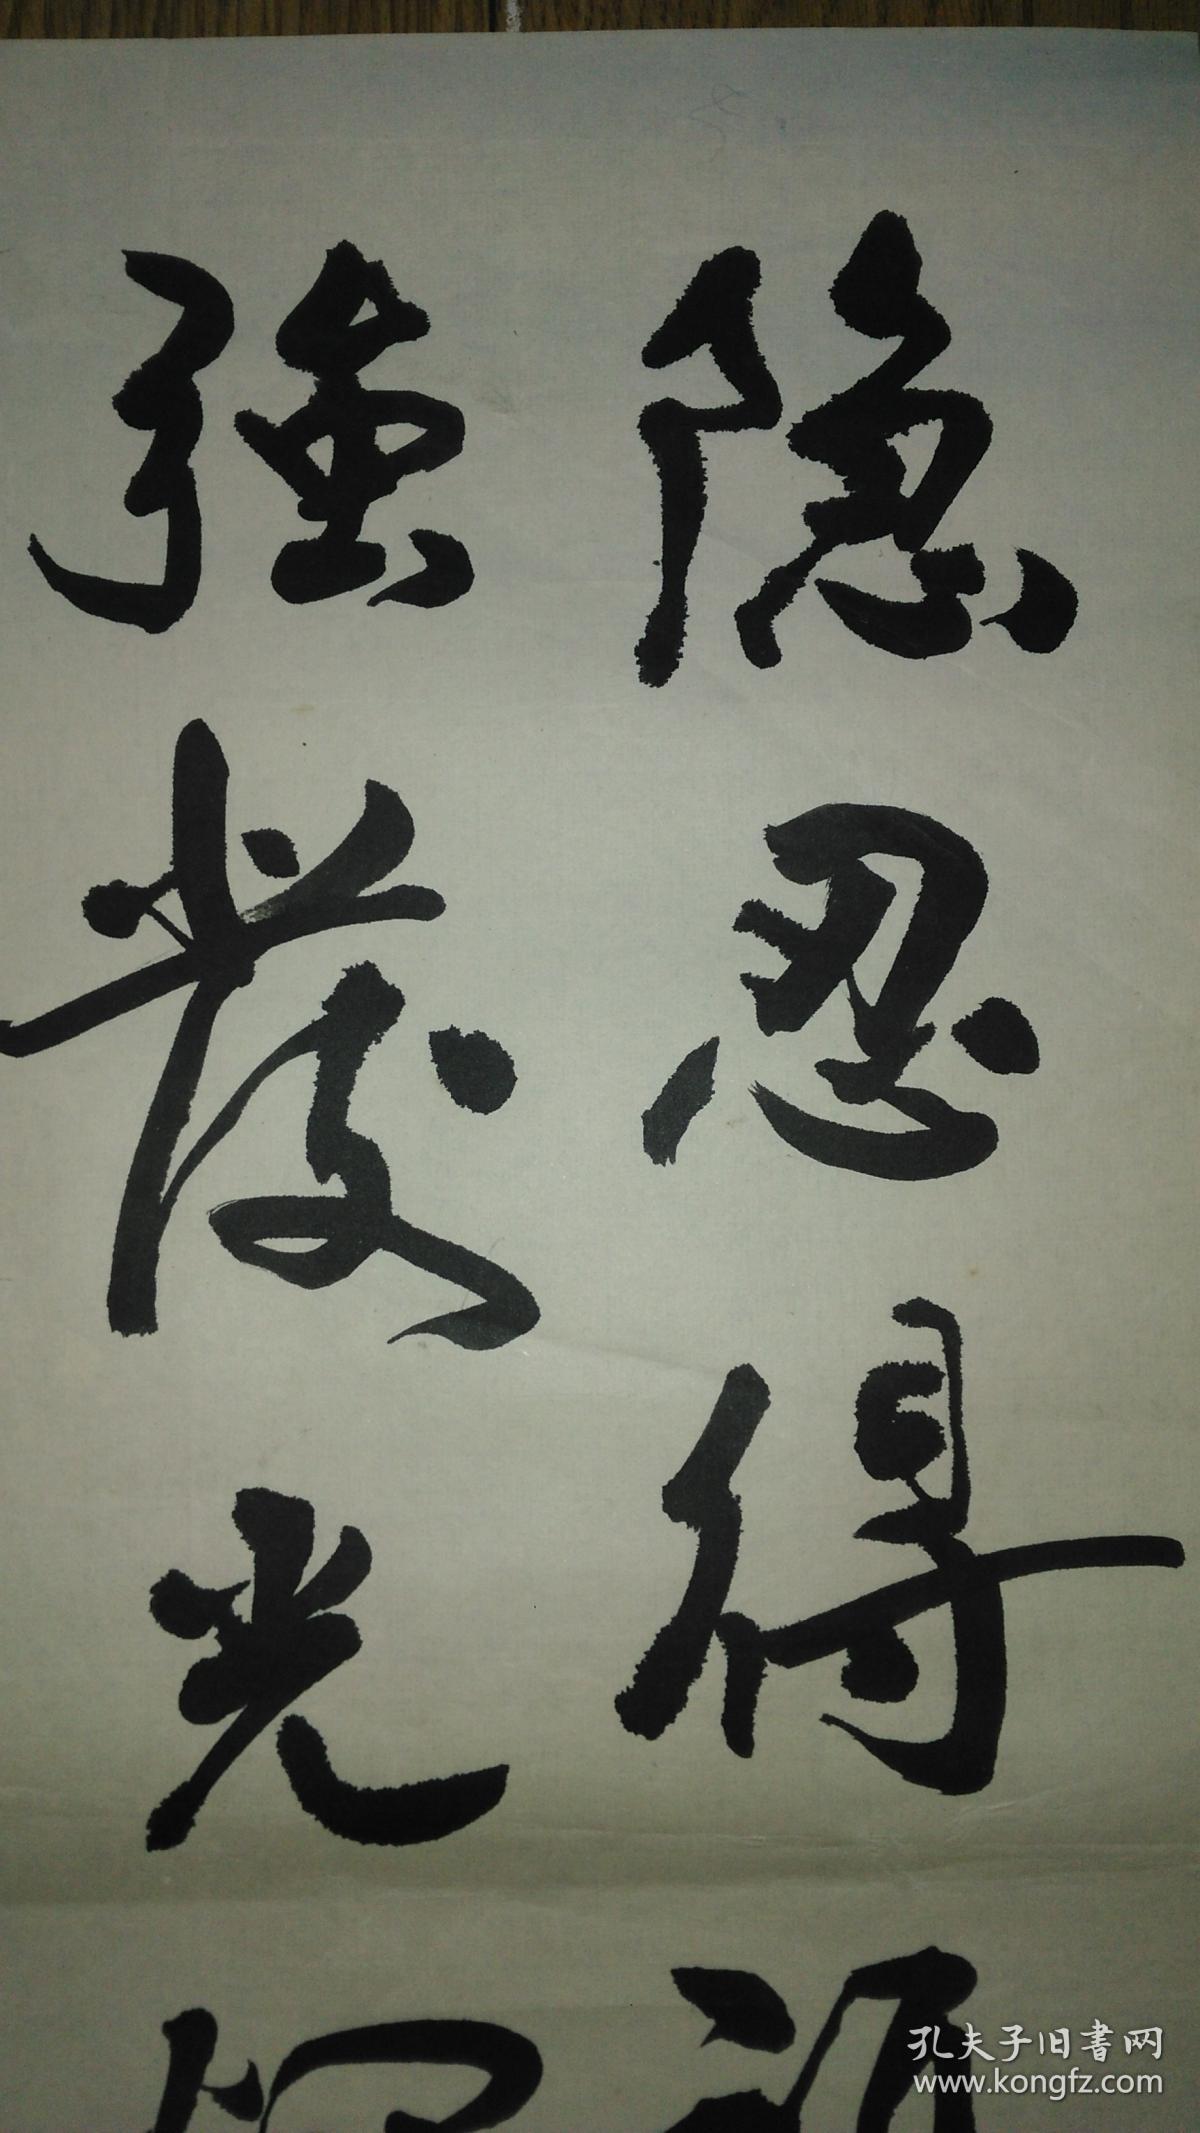 隐忍得
強發光
孔夫子旧書网
www.kongfz.com